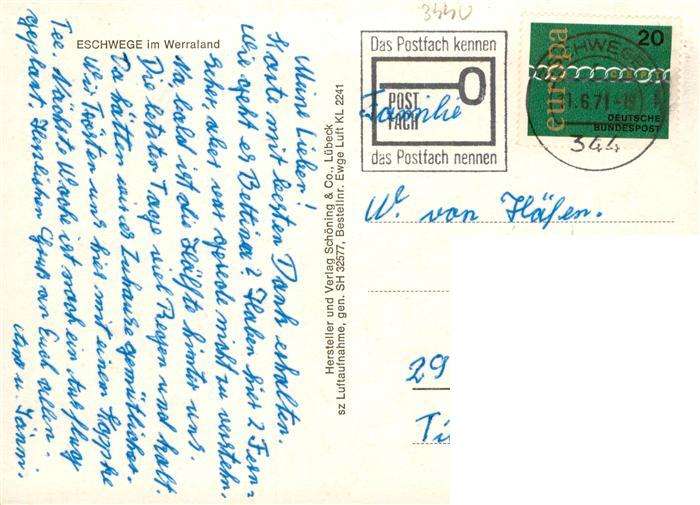 3440
ESCHWEGE im Werraland
Meine Lieben!
Karte mit besten Dank erhalten.
Wie geht es Bettina? Haben hier 2 Fern-
seher, aber wir gerade nicht zu verstehn.
Na bald ist die Hälfte hinter uns.
Die letzten Tage viel Regen und kalt.
Da hätten wir es Zuhause gemütlicher.
Wir Trösten uns hier mit einem Köppke
Tee. Nächste Woche ist noch ein Ausflug
geplant. Herzlichen Gruß an Euch allen.
Hersteller und Verlag Schöning & Co., Lübeck
sz Luftaufnahme, gen. SH 32577, Bestellnr. Ewge Luft KL 2241
Das Postfach kennen
POST
FACH
das Postfach nennen
europa
20
DEUTSCHE
BUNDESPOST
ESCHWEGE
1.6.71-18
344
Familie
W. von Häfen.
29